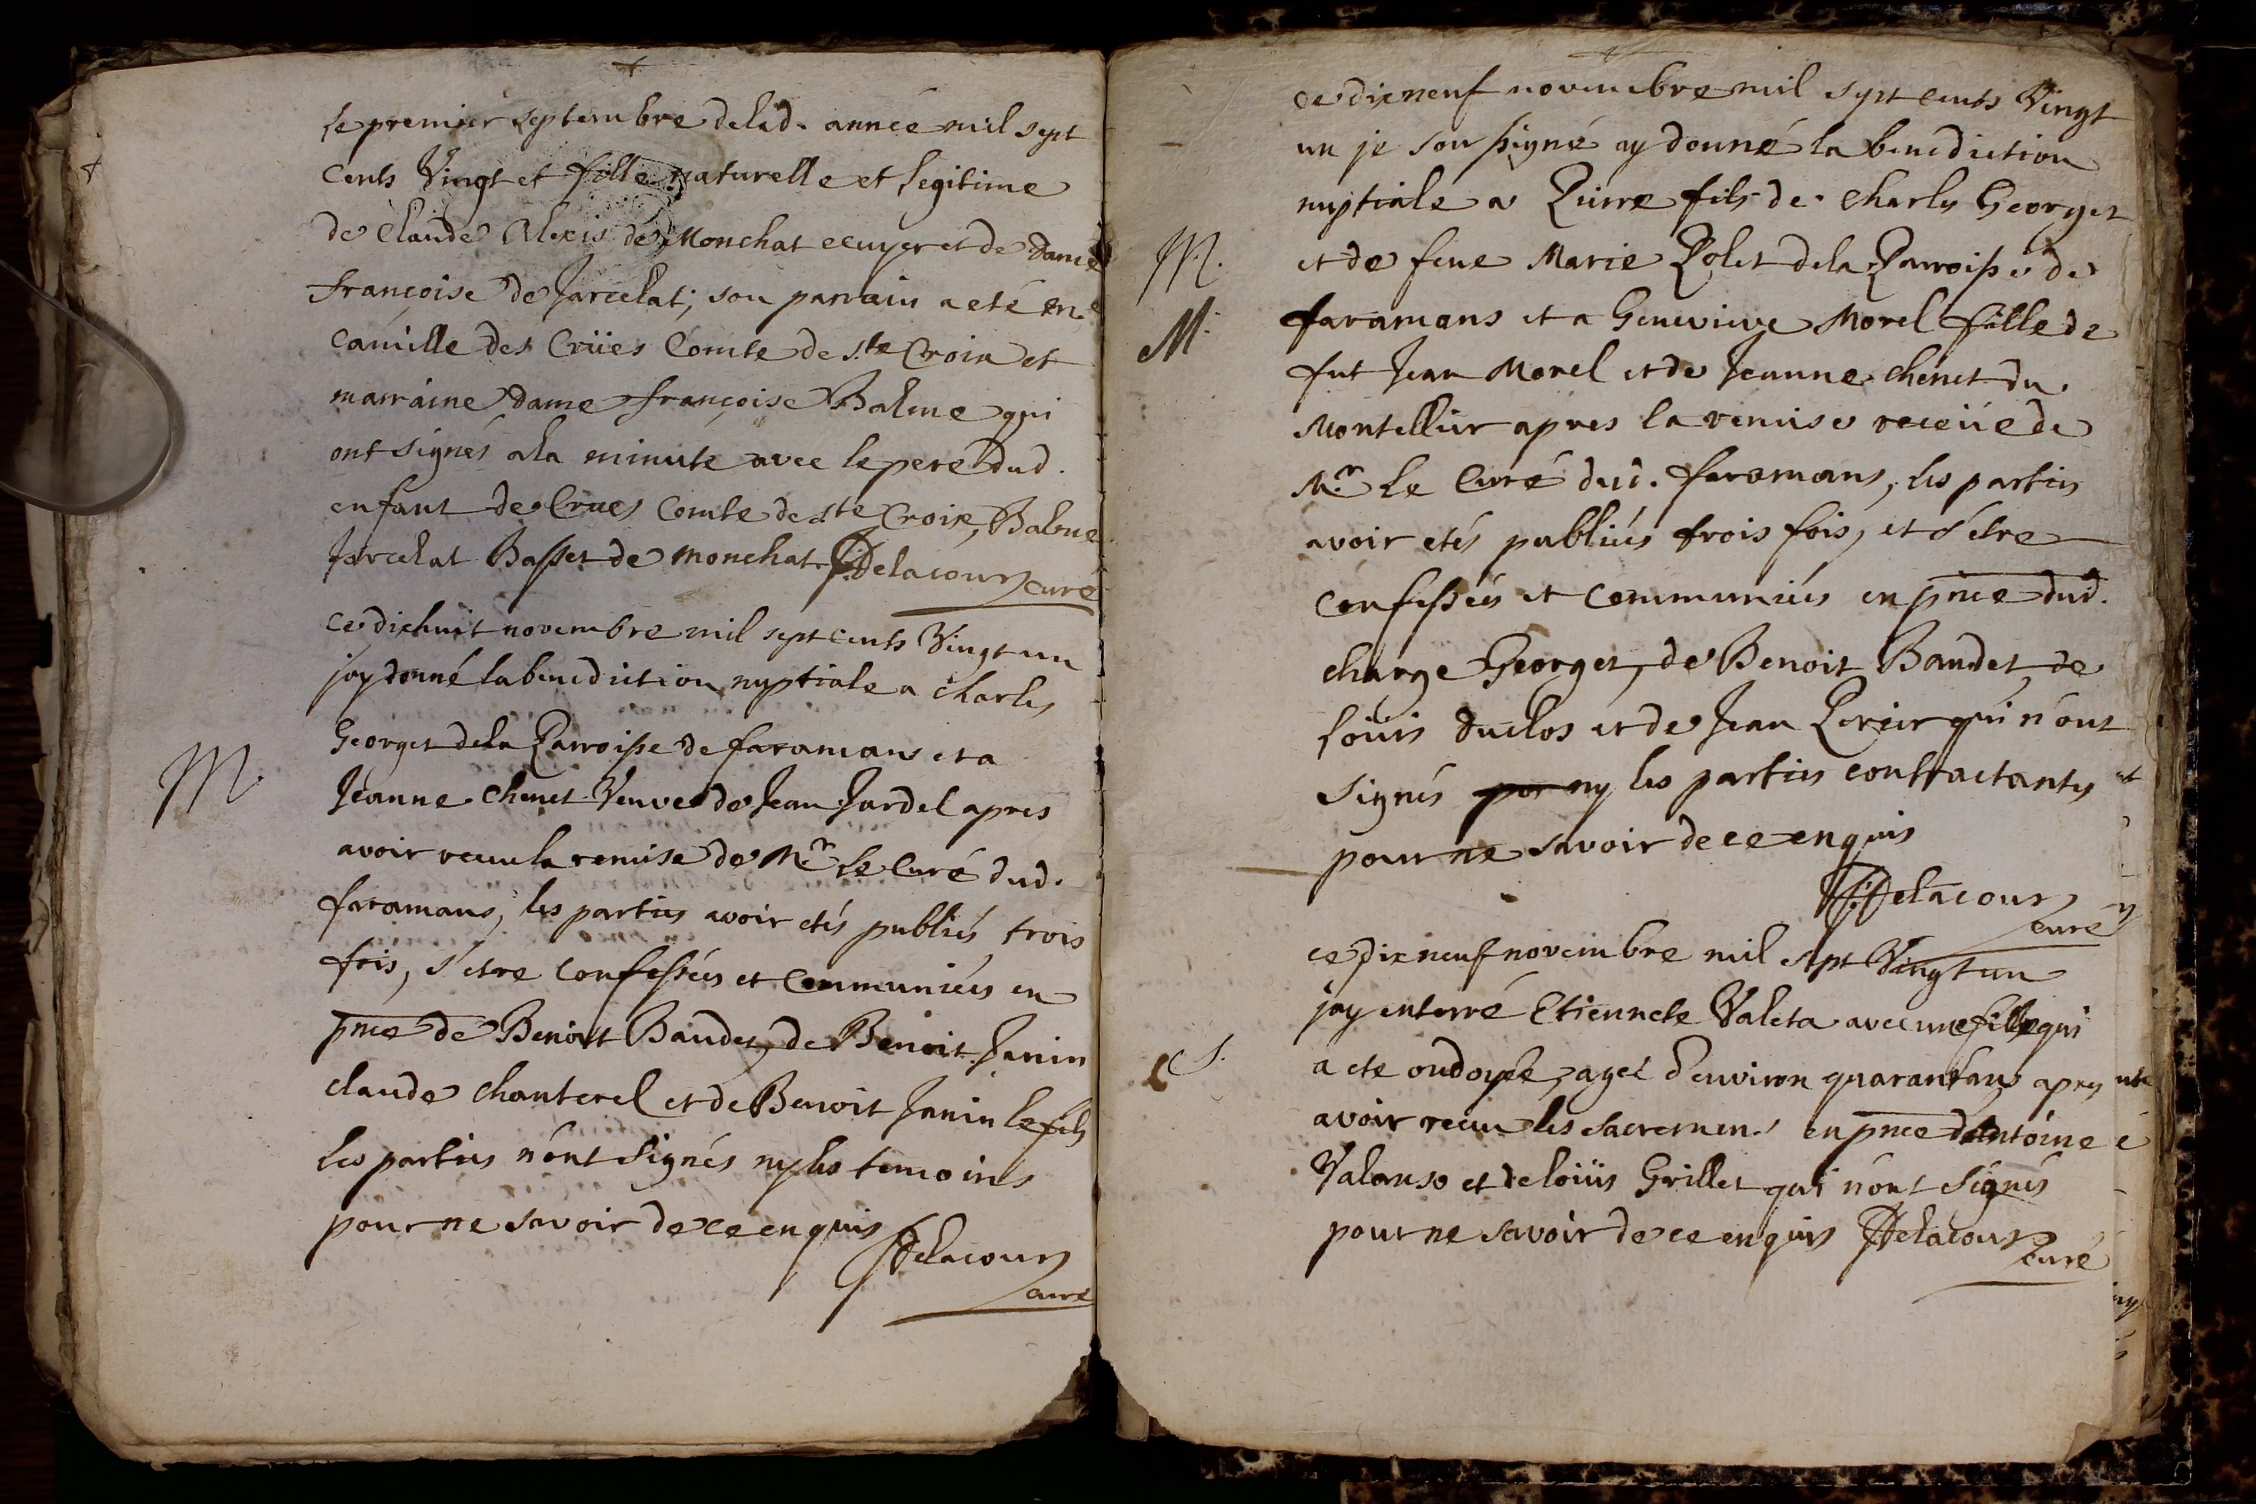 le premier septembre delad. année mil sept
cents Vingt et fille naturelle et legitime
de Claude Alexis de Monchat ecuyer et de dame
françoise de Jarcelat; son parrain a eté mr
Camille des Crües Comte de s.te Croix et
marraine dame françoise Balme qui
ont signés ala minute avec le pere dud.
enfant de Crües Comte de ste Croix, Balme
Jarcelat Basset de monchat Delacour
curé
ce dixhuit novembre mil sept cents Vingt un
jay donné la benediction nuptiale a charles
Georget dela Parroisse de faramans et a
M.
Jeanne chenet Veuve de Jean Jardel apres
avoir receu la remise de Mr. le Curé dud.
faramans, les parties avoir etés publiés trois
fois, s'etre confessées et communiées en
pnce de Benoit Baudet, de Benoit Janin
claude chanterel et de Benoit Janin le fils
les parties n'ont signés ny les temoins
pour ne savoir de ce enquis
Delacour
curé
ce dix neuf novembre mil sept cents Vingt
un je soussigné ay donné la benediction
nuptiale a Pierre fils de charles Georget
M.
et de feue Marie Polet dela Parroisse de
M.
faramans et a Genevieve Morel fille de
fut Jean Morel et de Jeanne chenet du
Montellier apres la remise receüe de
Mr. le Curé dud. faramans, les parties
avoir etés publiés trois fois, et s'etre
confessées et communiées en pnce dud.
charge Georget, de Benoit Baudet de
loüis duclos et de Jean Perier qui n'ont
signés par ny les parties contractantes
pour ne savoir de ce enquis
Delacour
curé
ce dix neuf novembre mil sept Vingt un
jay enterré Etiennete Valeta avec une fille qui
S.
a ete ondoyée, ageé d'environ quarant'ans apres
avoir receu les sacremens en pnce d'Antoine
Valanso et de loüis Grillet qui n'ont signés
pour ne savoir de ce enquis Delacour
curé